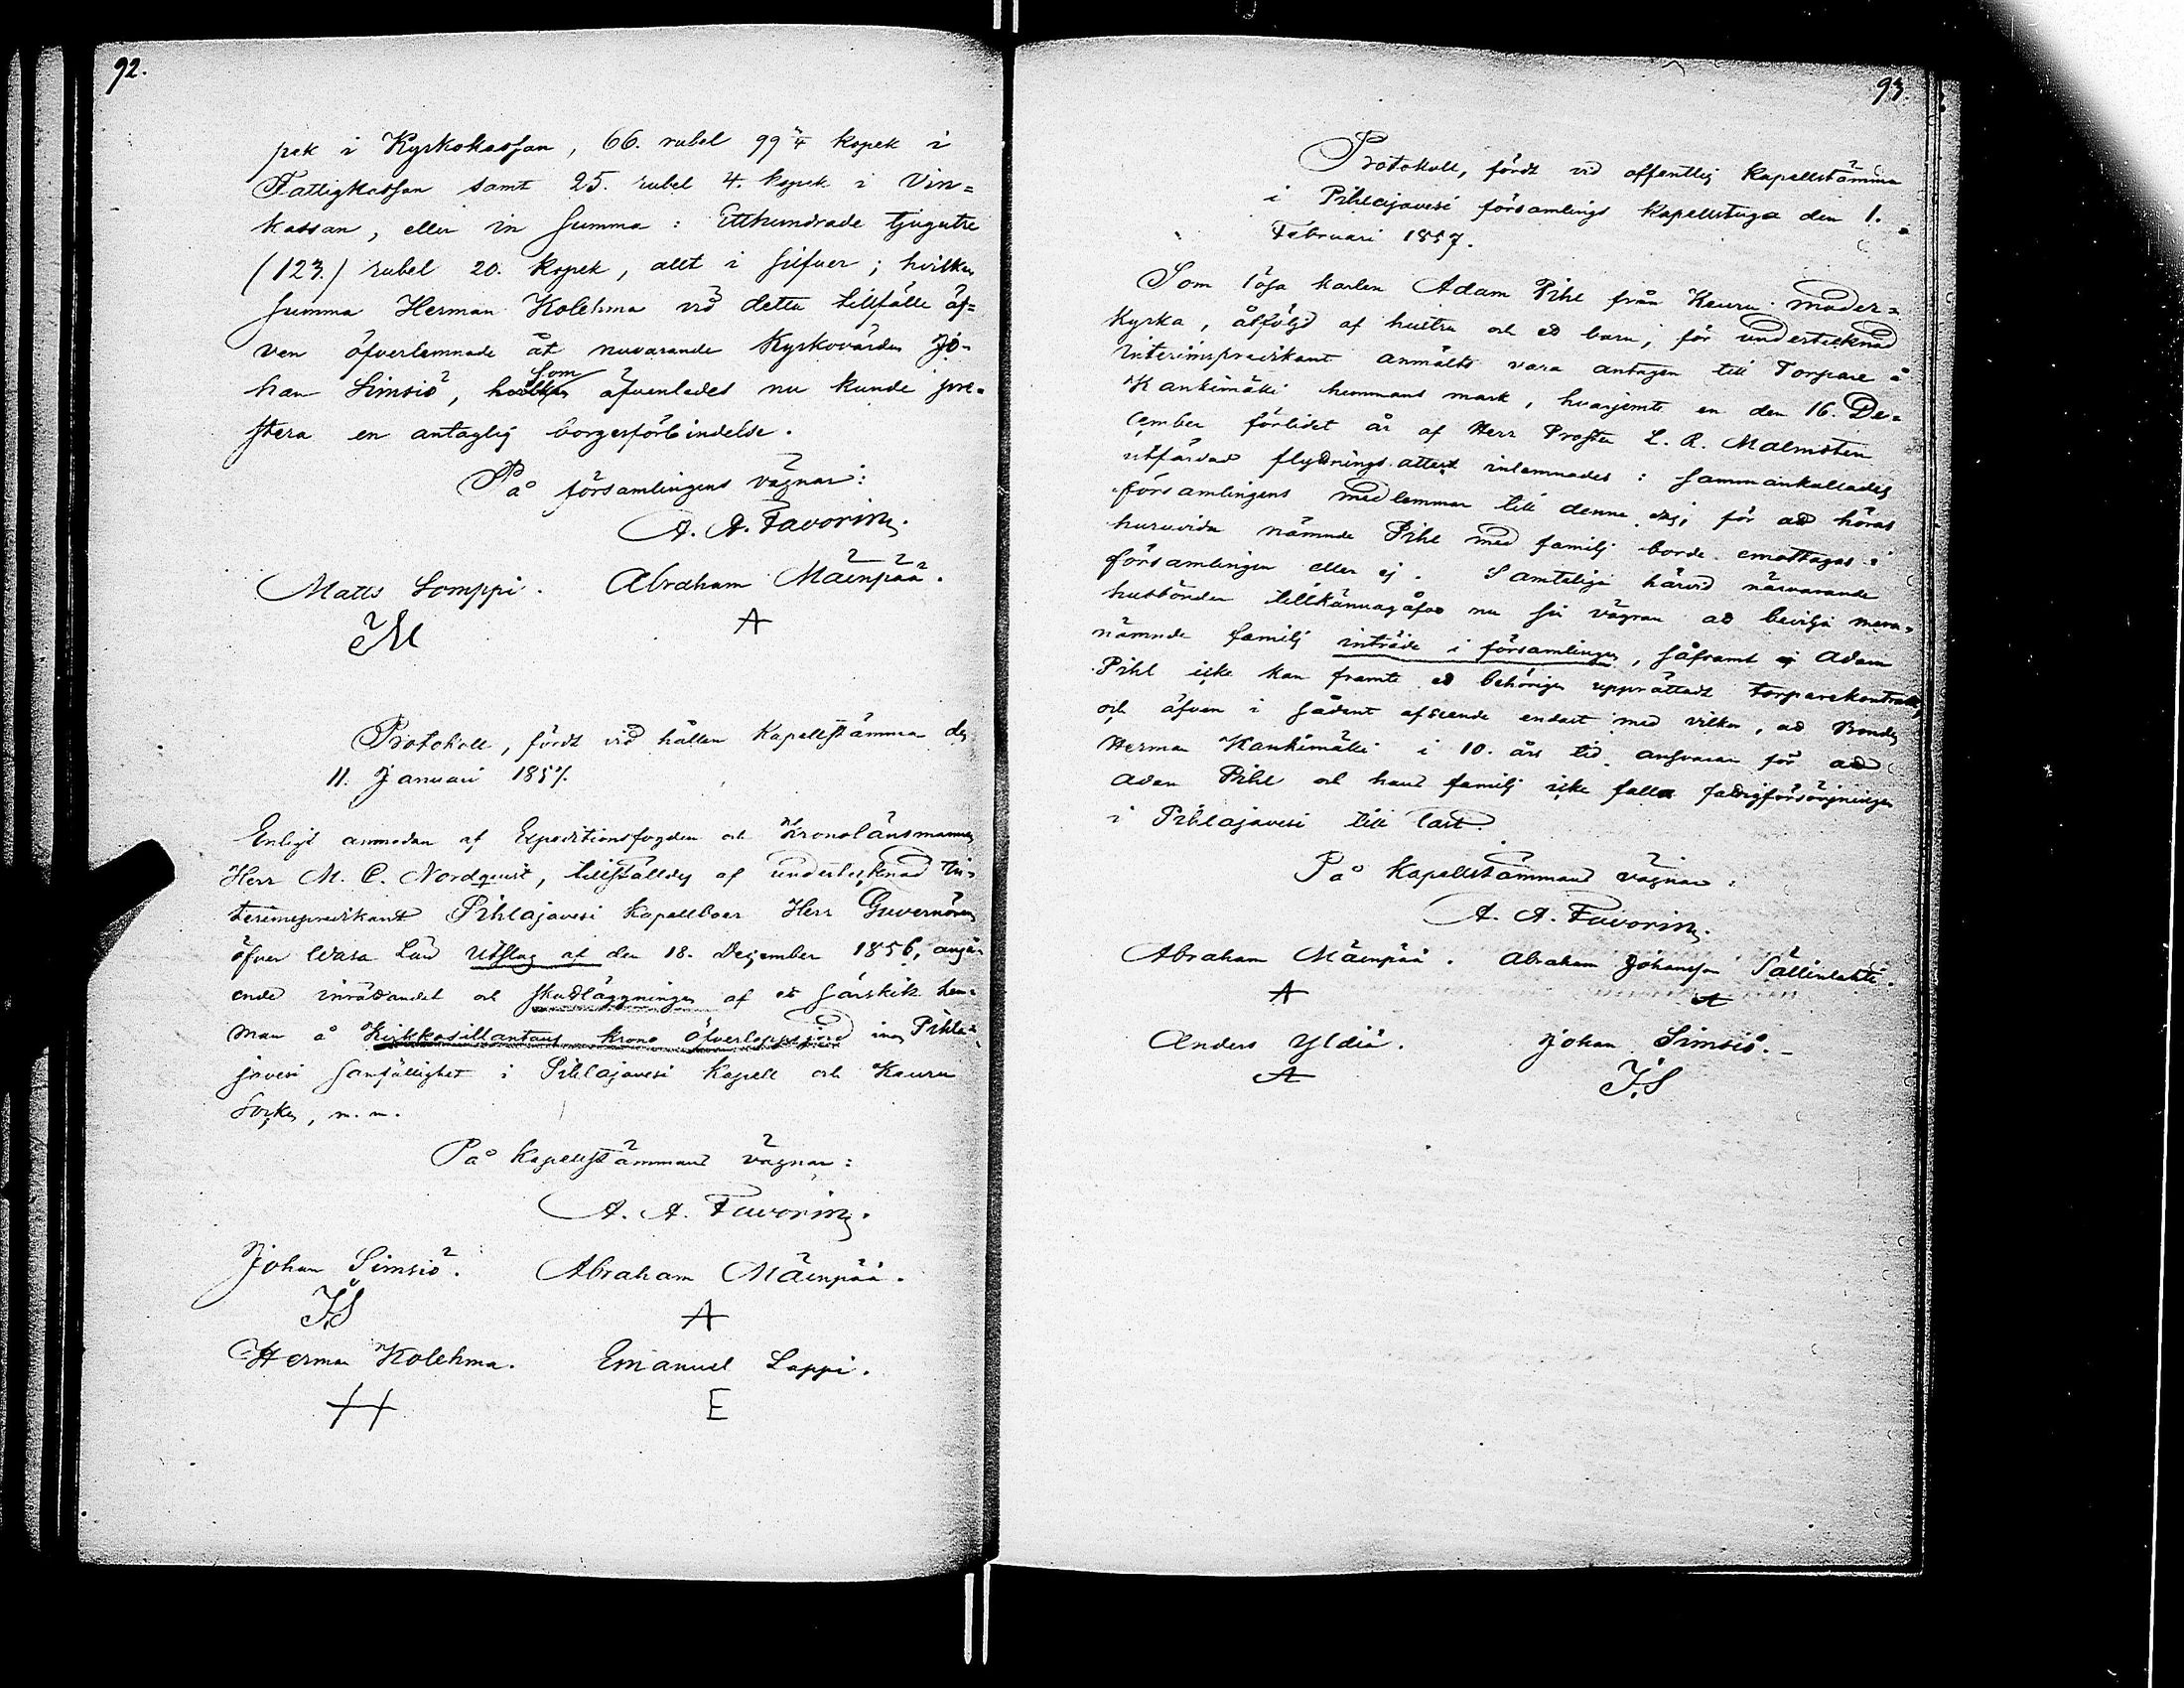 92.
pek i Kyrkokassan, 66. rubel 99 3/4 kopek i
Fattigkassan samt 25. rubel 4. kopek i Vin=
kassan, eller in summa: Etthundrade tjugutre
(123.) rubel 20. kopek, allt i silfver; hvilken
summa Herman Kolehma vid detta tillfälle äf=
ven öfverlemnade åt nuvarande Kyrkovärden Jo=
han Simsiö, som äfvenledes nu kunde pre=
stera en antaglig borgesförbindelse.
På församlingens vägnar:
A. A. Favorin.
Matts Lomppi. Abraham Mäenpää.
M A
Protokoll, fördt vid hållen Kapellstämma den
11. Januari 1857.
Enligt anmodan af Expeditionsfogden och Kronolänsmannen
Herr M. C. Nordquist, tillställdes af undertecknad In=
terimspredikant Pihlajavesi Kapellboer Herr Guvernörens
öfver Wasa Län utslag af den 18. December 1856, angå=
ende inrättandet och skattläggningen af et särskilt hem=
man å Kirkkosillantaus krono öfverloppsjord inom Pihla=
javesi samfällighet i Pihlajavesi Kapell och Keuru
Socken, m. m.
På Kapellstämmans vägnar:
A. A. Favorin.
Johan Simsiö. Abraham Mäenpää.
J.S A
Herman Kolehma. Emanuel Lappi.
H E
93.
Protokoll, fördt vid offentlig Kapellstämma
i Pihlajavesi församlings Kapellstuga den 1.
Februari 1857.
Som lösa karlen Adam Pihl från Keuru moder=
kyrka, åtföljd af hustru och et barn, för undertecknad
interimspredikant anmälts vara antagen till Torpare å
Kankimäki hemmans mark, hvarjemte en den 16. De=
cember förlidet år af Herr Prosten L. R. Malmsten
utfärdad flyttnings attest inlemnades: sammankallades
församlingens medlemmar till denna dag, för att höras
huruvida nämnde Pihl med familj borde emottagas i
församlingen eller ej. Samtelige härvid närvarande
husbönder tillkännagåfvo nu sin vägran att bevilja mera=
nämnde familj inträde i församlingen, såframt ej Adam
Pihl icke kan framte et behörigen upprättadt torparekontrakt,
och äfven i sådant afseende endast med vilkor, att Bonden
Herman Kankimäki i 10. års tid ansvarar för att
Adam Pihl och hans familj icke falla fattigförsörjningen
i Pihlajavesi till last.
På Kapellstämmans vägnar:
A. A. Favorin.
Abraham Mäenpää. Abraham Johansson Sällinlahti.
A A
Anders Yldiä. Johan Simsiö.
A J.S